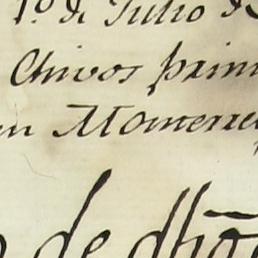 1.º de Julio de
Chivos prim
en Momerre
o de dho